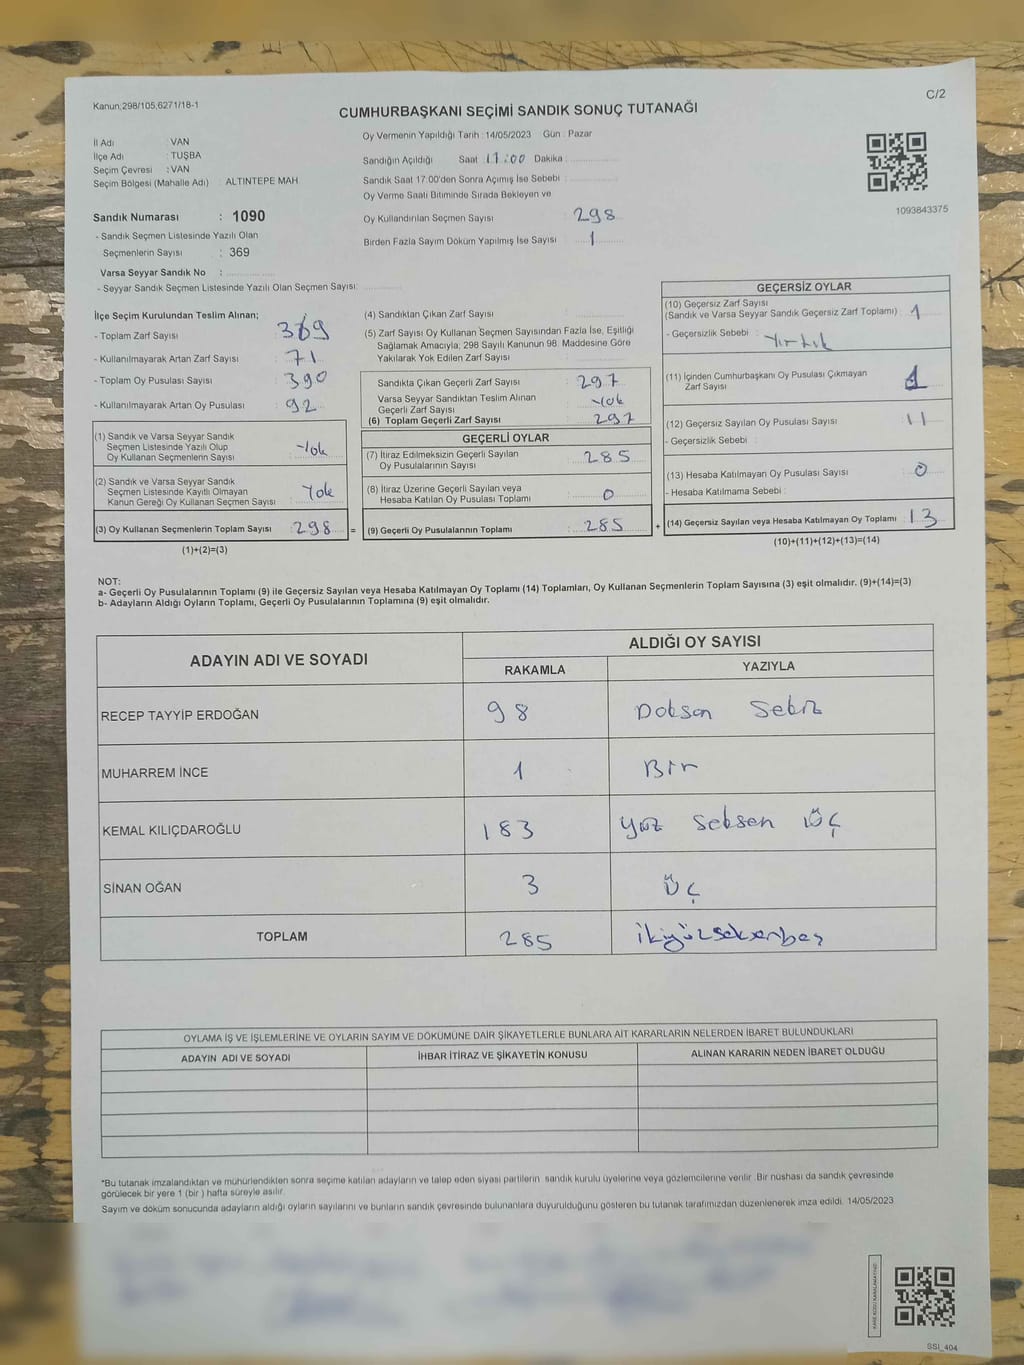 Kanun;298/105,6271/18-1
C/2
CUMHURBAŞKANI SEÇİMİ SANDIK SONUÇ TUTANAĞI
İl Adı : VAN
İlçe Adı : TUŞBA
Seçim Çevresi : VAN
Seçim Bölgesi (Mahalle Adı) : ALTINTEPE MAH.
Oy Vermenin Yapıldığı Tarih : 14/05/2023 Gün : Pazar
Sandığın Açıldığı Saat 17:00 Dakika :
Sandık Saat 17:00'den Sonra Açımış İse Sebebi :
Oy Verme Saati Bitiminde Sırada Bekleyen ve
Oy Kullandırılan Seçmen Sayısı : 298
Birden Fazla Sayım Döküm Yapılmış İse Sayısı : 1
1093843375
Sandık Numarası : 1090
- Sandık Seçmen Listesinde Yazılı Olan
Seçmenlerin Sayısı : 369
Varsa Seyyar Sandık No :
- Seyyar Sandık Seçmen Listesinde Yazılı Olan Seçmen Sayısı:
İlçe Seçim Kurulundan Teslim Alınan;
- Toplam Zarf Sayısı : 369
- Kullanılmayarak Artan Zarf Sayısı : 71
- Toplam Oy Pusulası Sayısı : 390
- Kullanılmayarak Artan Oy Pusulası : 92
(1) Sandık ve Varsa Seyyar Sandık
Seçmen Listesinde Yazılı Olup
Oy Kullanan Seçmenlerin Sayısı : Yok
(2) Sandık ve Varsa Seyyar Sandık
Seçmen Listesinde Kayıtlı Olmayan
Kanun Gereği Oy Kullanan Seçmen Sayısı : Yok
(3) Oy Kullanan Seçmenlerin Toplam Sayısı : 298 =
(1)+(2)=(3)
(4) Sandıktan Çıkan Zarf Sayısı :
(5) Zarf Sayısı Oy Kullanan Seçmen Sayısından Fazla İse, Eşitliği
Sağlamak Amacıyla; 298 Sayılı Kanunun 98. Maddesine Göre
Yakılarak Yok Edilen Zarf Sayısı :
Sandıkta Çıkan Geçerli Zarf Sayısı : 297
Varsa Seyyar Sandıktan Teslim Alınan
Geçerli Zarf Sayısı : Yok
(6) Toplam Geçerli Zarf Sayısı : 297
GEÇERLİ OYLAR
(7) İtiraz Edilmeksizin Geçerli Sayılan
Oy Pusulalarının Sayısı : 285
(8) İtiraz Üzerine Geçerli Sayılan veya
Hesaba Katılan Oy Pusulası Toplamı : 0
(9) Geçerli Oy Pusulalarının Toplamı : 285 +
GEÇERSİZ OYLAR
(10) Geçersiz Zarf Sayısı
(Sandık ve Varsa Seyyar Sandık Geçersiz Zarf Toplamı) : 1
- Geçersizlik Sebebi : Yırtık
(11) İçinden Cumhurbaşkanı Oy Pusulası Çıkmayan
Zarf Sayısı : 1
(12) Geçersiz Sayılan Oy Pusulası Sayısı : 11
- Geçersizlik Sebebi :
(13) Hesaba Katılmayan Oy Pusulası Sayısı : 0
- Hesaba Katılmama Sebebi :
(14) Geçersiz Sayılan veya Hesaba Katılmayan Oy Toplamı : 13
(10)+(11)+(12)+(13)=(14)
NOT:
a- Geçerli Oy Pusulalarının Toplamı (9) ile Geçersiz Sayılan veya Hesaba Katılmayan Oy Toplamı (14) Toplamları, Oy Kullanan Seçmenlerin Toplam Sayısına (3) eşit olmalıdır. (9)+(14)=(3)
b- Adayların Aldığı Oyların Toplamı, Geçerli Oy Pusulalarının Toplamına (9) eşit olmalıdır.
ADAYIN ADI VE SOYADI
ALDIĞI OY SAYISI
RAKAMLA YAZIYLA
RECEP TAYYİP ERDOĞAN 98 Doksan Sekiz
MUHARREM İNCE 1 Bir
KEMAL KILIÇDAROĞLU 183 Yüz Seksen Üç
SİNAN OĞAN 3 Üç
TOPLAM 285 ikiyüzseksenbeş
OYLAMA İŞ VE İŞLEMLERİNE VE OYLARIN SAYIM VE DÖKÜMÜNE DAİR ŞİKAYETLERLE BUNLARA AİT KARARLARIN NELERDEN İBARET BULUNDUKLARI
ADAYIN ADI VE SOYADI İHBAR İTİRAZ VE ŞİKAYETİN KONUSU ALINAN KARARIN NEDEN İBARET OLDUĞU
*Bu tutanak imzalandıktan ve mühürlendikten sonra seçime katılan adayların ve talep eden siyasi partilerin sandık kurulu üyelerine veya gözlemcilerine verilir. Bir nüshası da sandık çevresinde
görülecek bir yere 1 (bir ) hafta süreyle asılır.
Sayım ve döküm sonucunda adayların aldığı oyların sayılarını ve bunların sandık çevresinde bulunanlara duyurulduğunu gösteren bu tutanak tarafımızdan düzenlenerek imza edildi. 14/05/2023
SSI_404